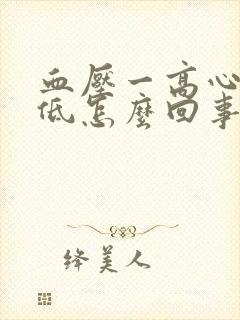 血壓一高心
低怎麼回事
絳美人